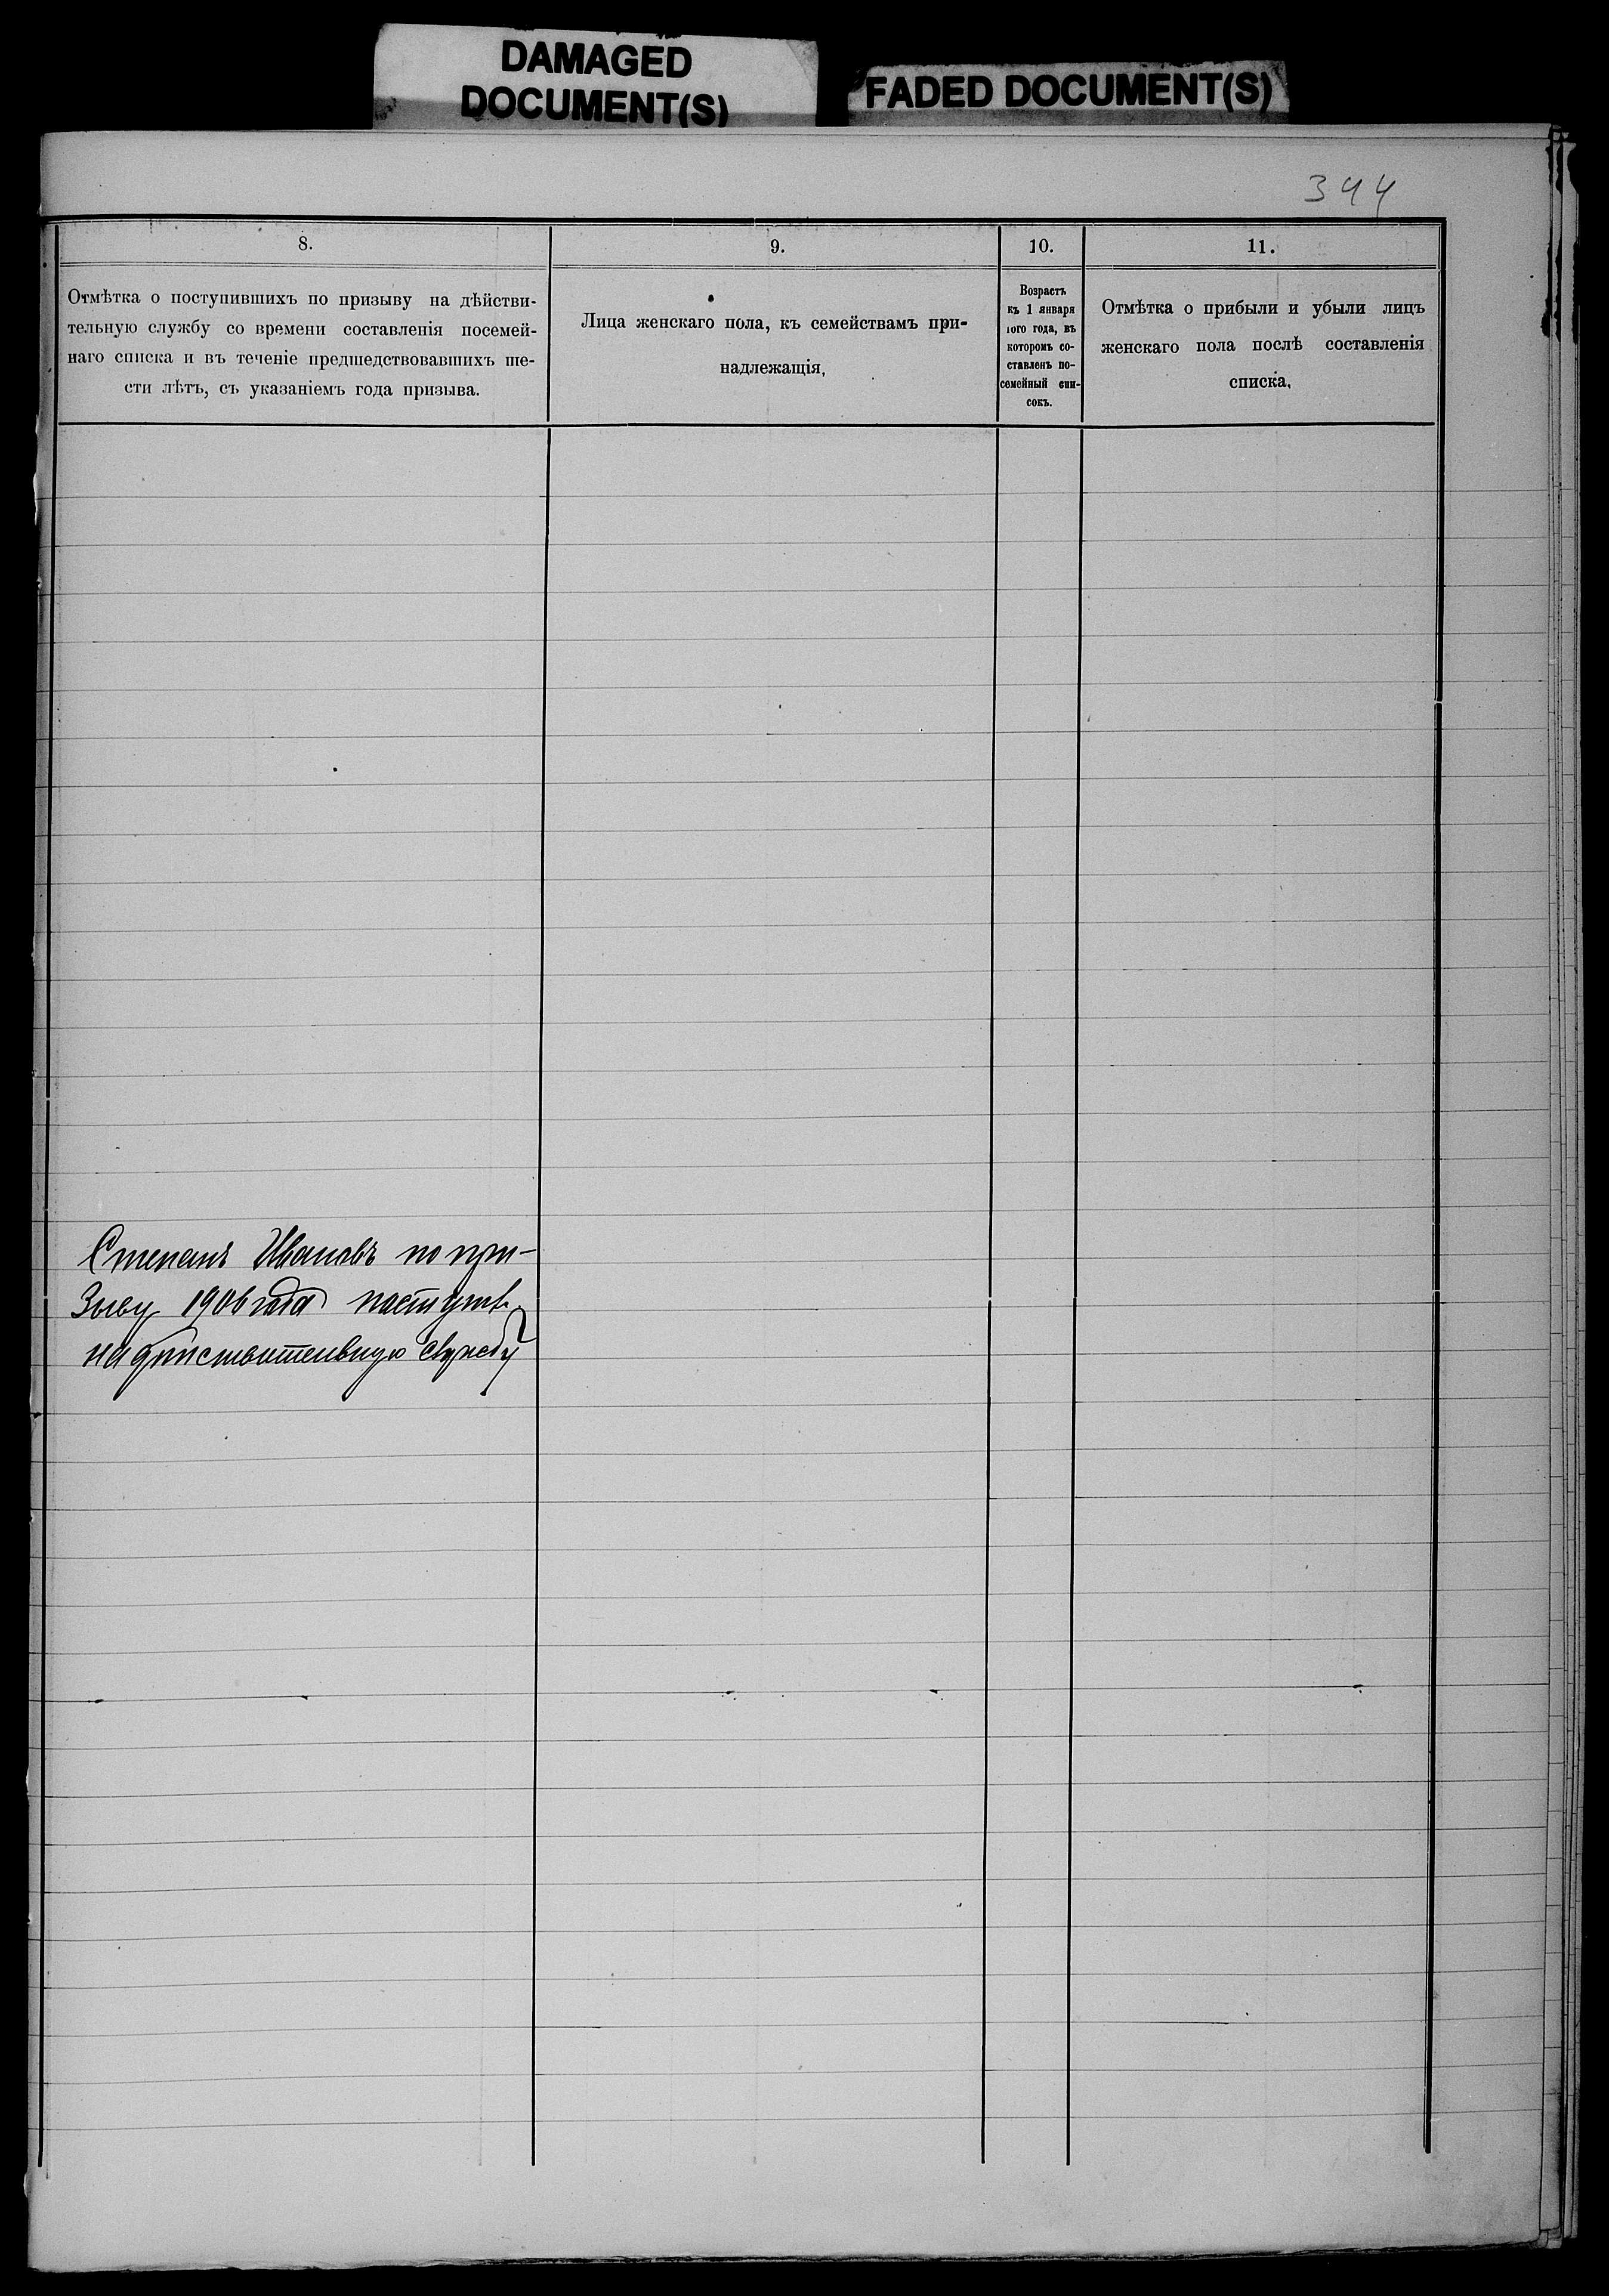 DAMAGED
DOCUMENT(S)
FADED DOCUMENT(S)
344
8.
Отмѣтка о поступившихъ по призыву на дѣйстви-
тельную службу со времени составленія посемей-
наго списка и въ теченіе предшедствовавшихъ ше-
сти лѣтъ, съ указаніемъ года призыва.
9.
Лица женскаго пола, къ семействамъ при-
надлежащія,
10.
Возрастъ
къ 1 января
того года, въ
которомъ со-
ставленъ по-
семейный спи-
сокъ.
11.
Отмѣтка о прибыли и убыли лицъ
женскаго пола послѣ составленія
списка.
Степанъ Ивановъ по при-
зыву 1906 года поступив
на дѣйствительную службу